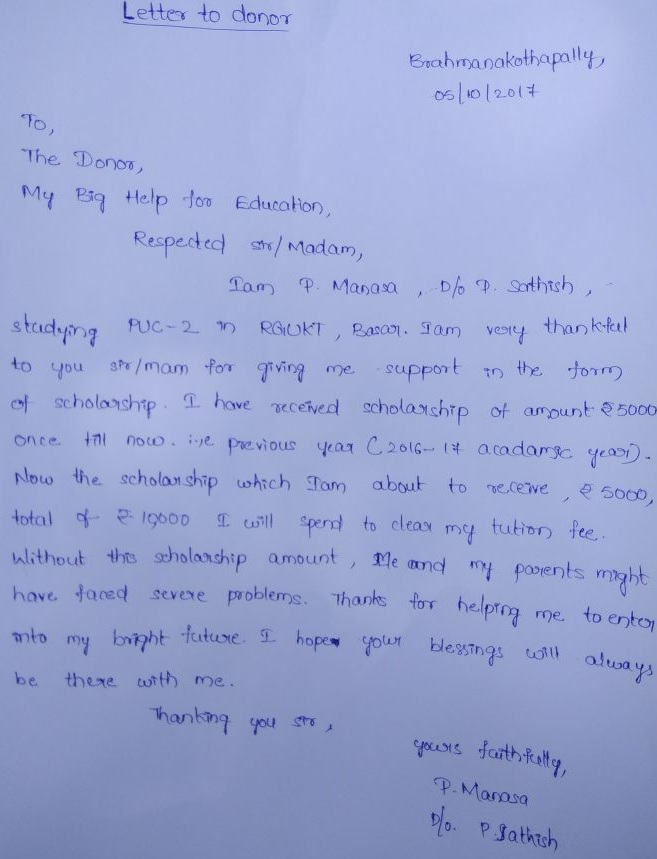 Letter to donor
Brahmanakothapally,
05/10/2017
To,
The Donor,
My Big Help for Education,
Respected sir/Madam,
Iam P. Manasa , D/o P. Sathish ,
studying PUC-2 in RGUKT, Basar. Iam very thankful
to you sir/mam for giving me support in the form
of scholarship. I have received scholarship of amount ₹5000
once till now. i.e previous year (2016-17 acadamic year).
Now the scholarship which Iam about to receive, ₹5000,
total of ₹10000 I will spend to clear my tution fee.
Without this scholarship amount, Me and my parents might
have faced severe problems. Thanks for helping me to enter
into my bright future. I hope your blessings will always
be there with me.
Thanking you sir,
yours faithfully,
P. Manasa
D/o. P. Sathish